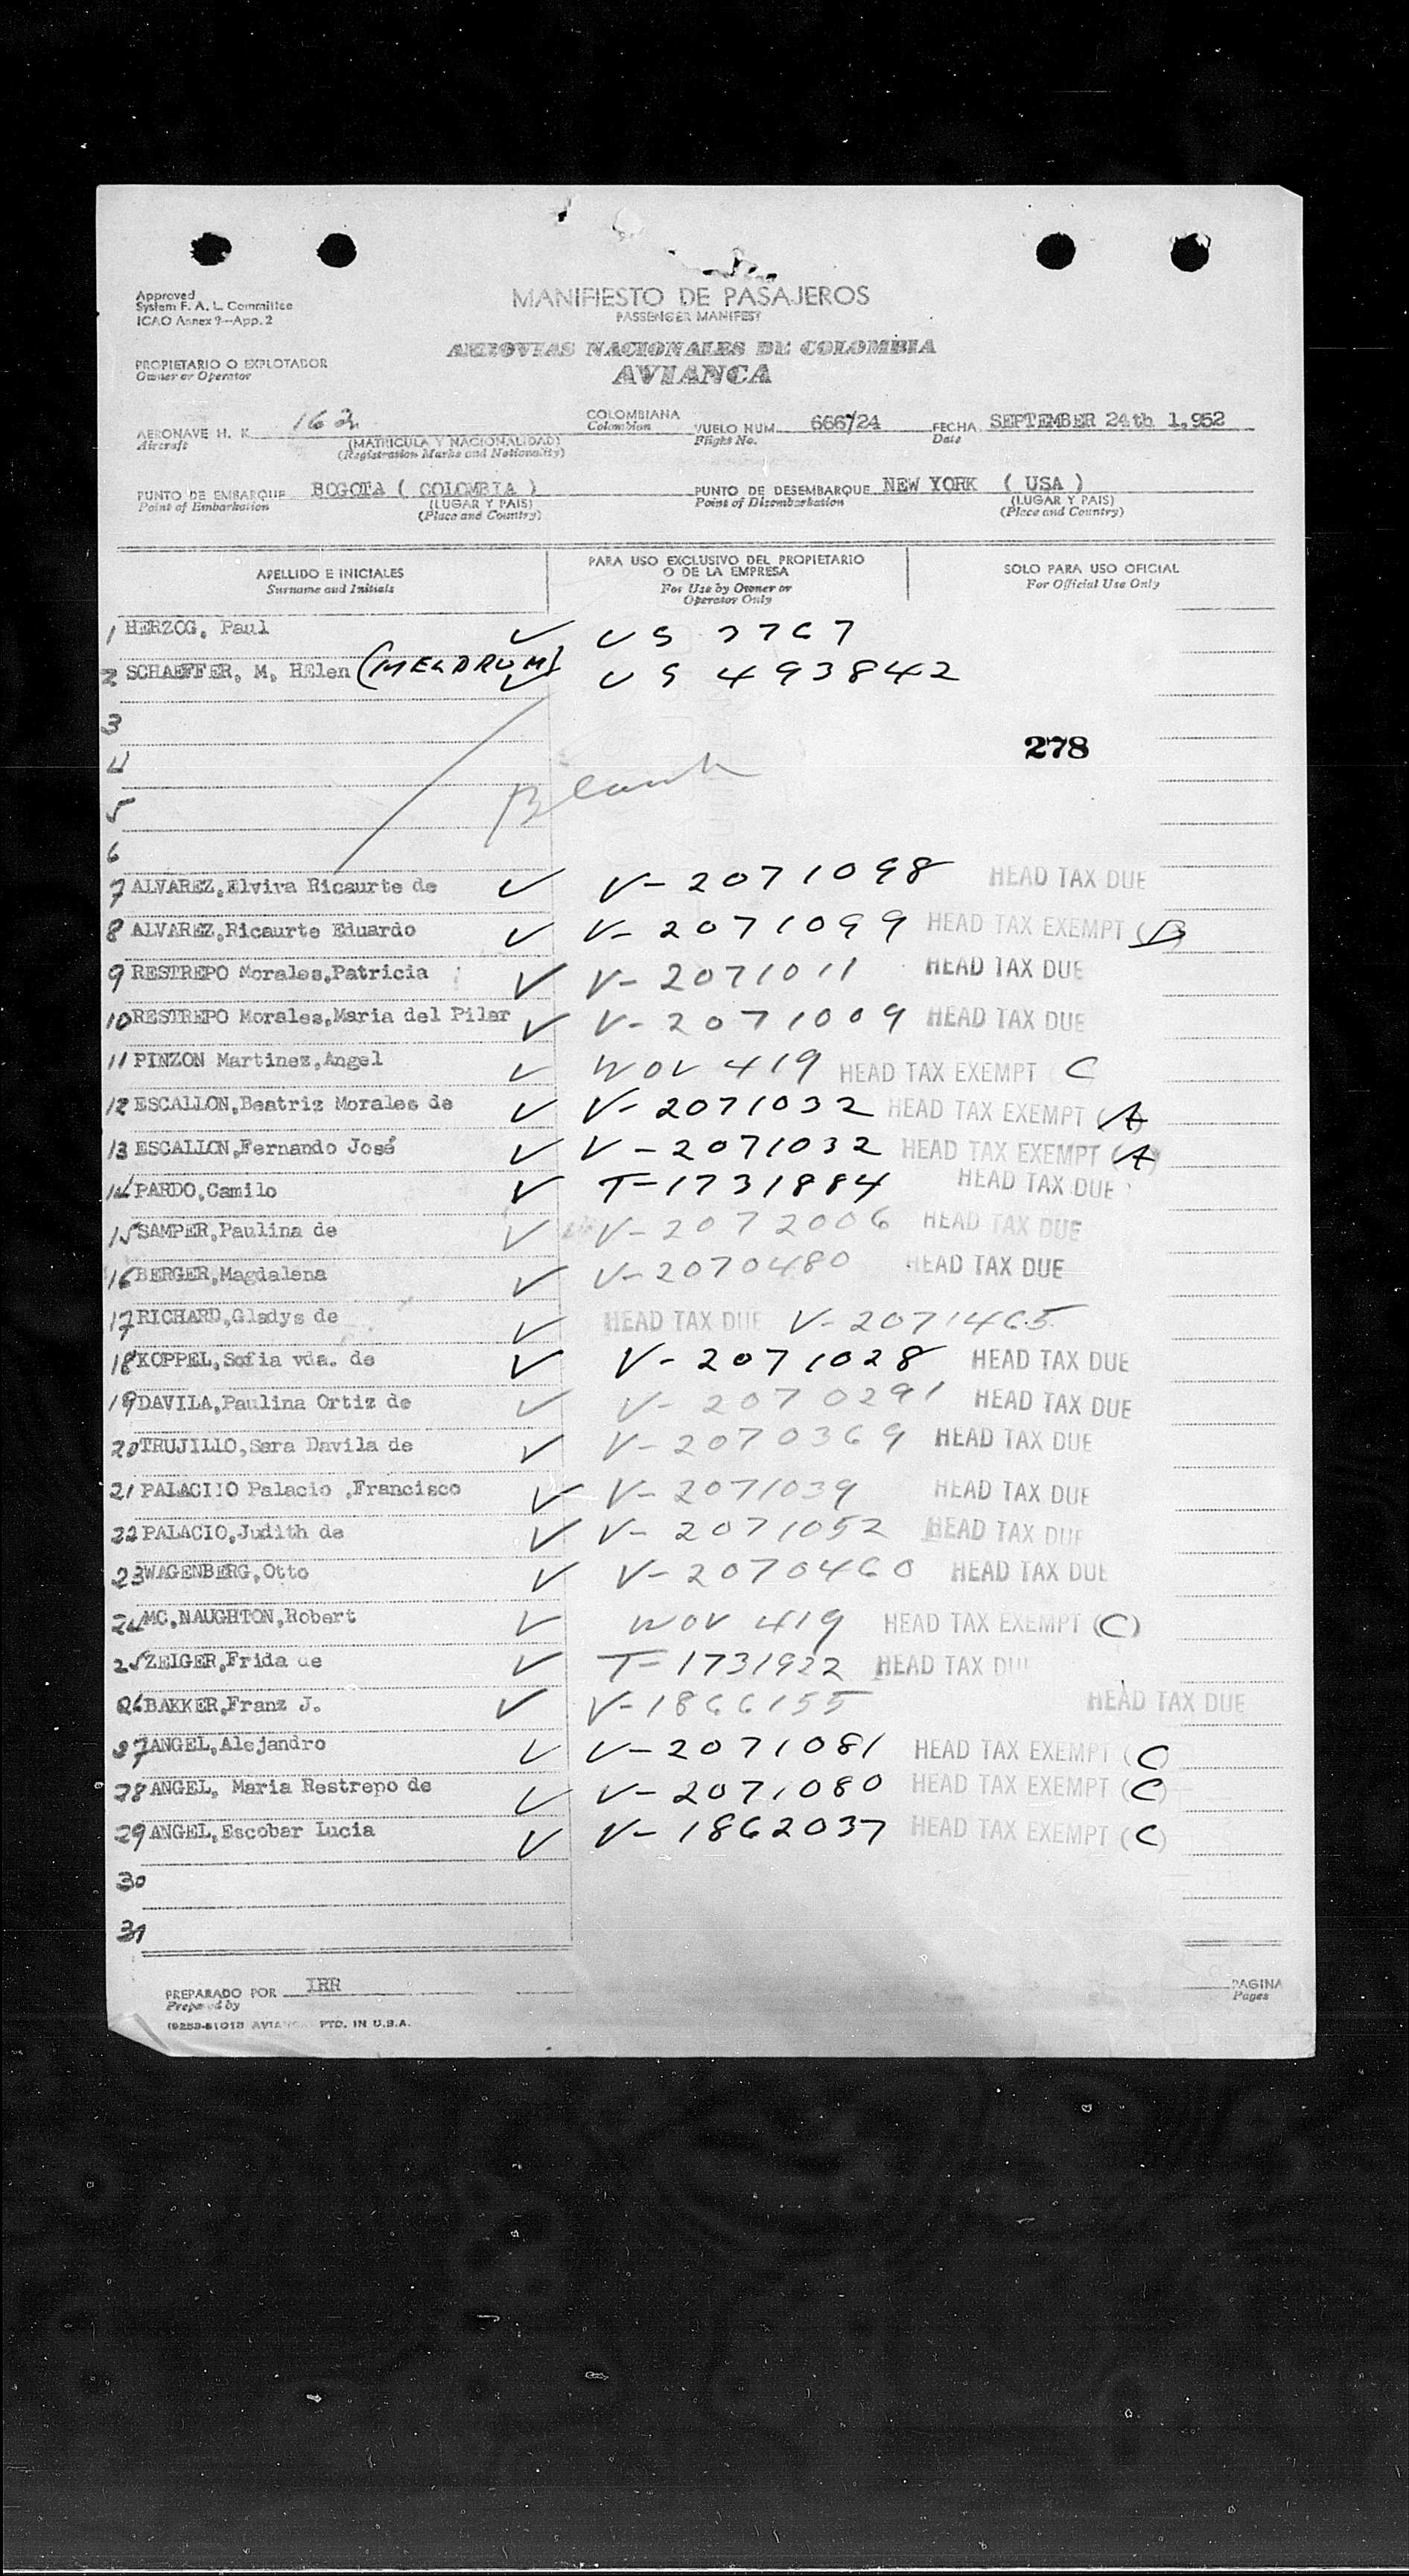 Approved
System F. A. L. Committee
ICAO Annex 9—App. 2
MANIFIESTO DE PASAJEROS
PASSENGER MANIFEST
AEROVIAS NACIONALES DE COLOMBIA
AVIANCA
PROPIETARIO O EXPLOTADOR
Owner or Operator
AERONAVE H. K. 162 COLOMBIANA VUELO NUM. 666/24 FECHA SEPTEMBER 24th 1,952
Aircraft (MATRICULA Y NACIONALIDAD) Colombian Flight No. Date
(Registration Marks and Nationality)
PUNTO DE EMBARQUE BOGOTA ( COLOMBIA ) PUNTO DE DESEMBARQUE NEW YORK ( USA )
Point of Embarkation (LUGAR Y PAIS) Point of Disembarkation (LUGAR Y PAIS)
(Place and Country) (Place and Country)
APELLIDO E INICIALES PARA USO EXCLUSIVO DEL PROPIETARIO O DE LA EMPRESA SOLO PARA USO OFICIAL
Surname and Initials For Use by Owner or Operator Only For Official Use Only
1 HERZOG, Paul ✓ US 3767
2 SCHAEFFER, M, HElen (MELDRUM) ✓ US 493842
3
278
4
Blank
5
6
7 ALVAREZ,Elvira Ricaurte de ✓ V-2071098 HEAD TAX DUE
8 ALVAREZ,Ricaurte Eduardo ✓ V-2071099 HEAD TAX EXEMPT
9 RESTREPO Morales,Patricia ✓ V-2071011 HEAD TAX DUE
10 RESTREPO Morales,Maria del Pilar ✓ V-2071009 HEAD TAX DUE
11 PINZON Martinez,Angel ✓ WOV 419 HEAD TAX EXEMPT C
12 ESCALLON,Beatriz Morales de ✓ V-2071032 HEAD TAX EXEMPT (A)
13 ESCALLON,Fernando José ✓ V-2071032 HEAD TAX EXEMPT (A)
14 PARDO,Camilo ✓ T-1731884 HEAD TAX DUE
15 SAMPER,Paulina de ✓ V-2072006 HEAD TAX DUE
16 BERGER,Magdalena ✓ V-2070480 HEAD TAX DUE
17 RICHARD,Gladys de ✓ HEAD TAX DUE V-2071465
18 KOPPEL,Sofia vda. de ✓ V-2071028 HEAD TAX DUE
19 DAVILA,Paulina Ortiz de ✓ V-2070291 HEAD TAX DUE
20 TRUJILLO,Sara Davila de ✓ V-2070369 HEAD TAX DUE
21 PALACIIO Palacio ,Francisco ✓ V-2071039 HEAD TAX DUE
22 PALACIO,Judith de ✓ V-2071052 HEAD TAX DUE
23 WAGENBERG,Otto ✓ V-2070460 HEAD TAX DUE
24 MC,NAUGHTON,Robert ✓ WOV 419 HEAD TAX EXEMPT (C)
25 ZEIGER,Frida de ✓ T-1731922 HEAD TAX DUE
26 BAKKER,Franz J. ✓ V-1866155 HEAD TAX DUE
27 ANGEL,Alejandro ✓ V-2071081 HEAD TAX EXEMPT (C)
28 ANGEL, Maria Restrepo de ✓ V-2071080 HEAD TAX EXEMPT (C)
29 ANGEL,Escobar Lucia ✓ V-1862037 HEAD TAX EXEMPT (C)
30
31
PREPARADO POR IRR PAGINA
Prepared by Pages
PTD. IN U.S.A.